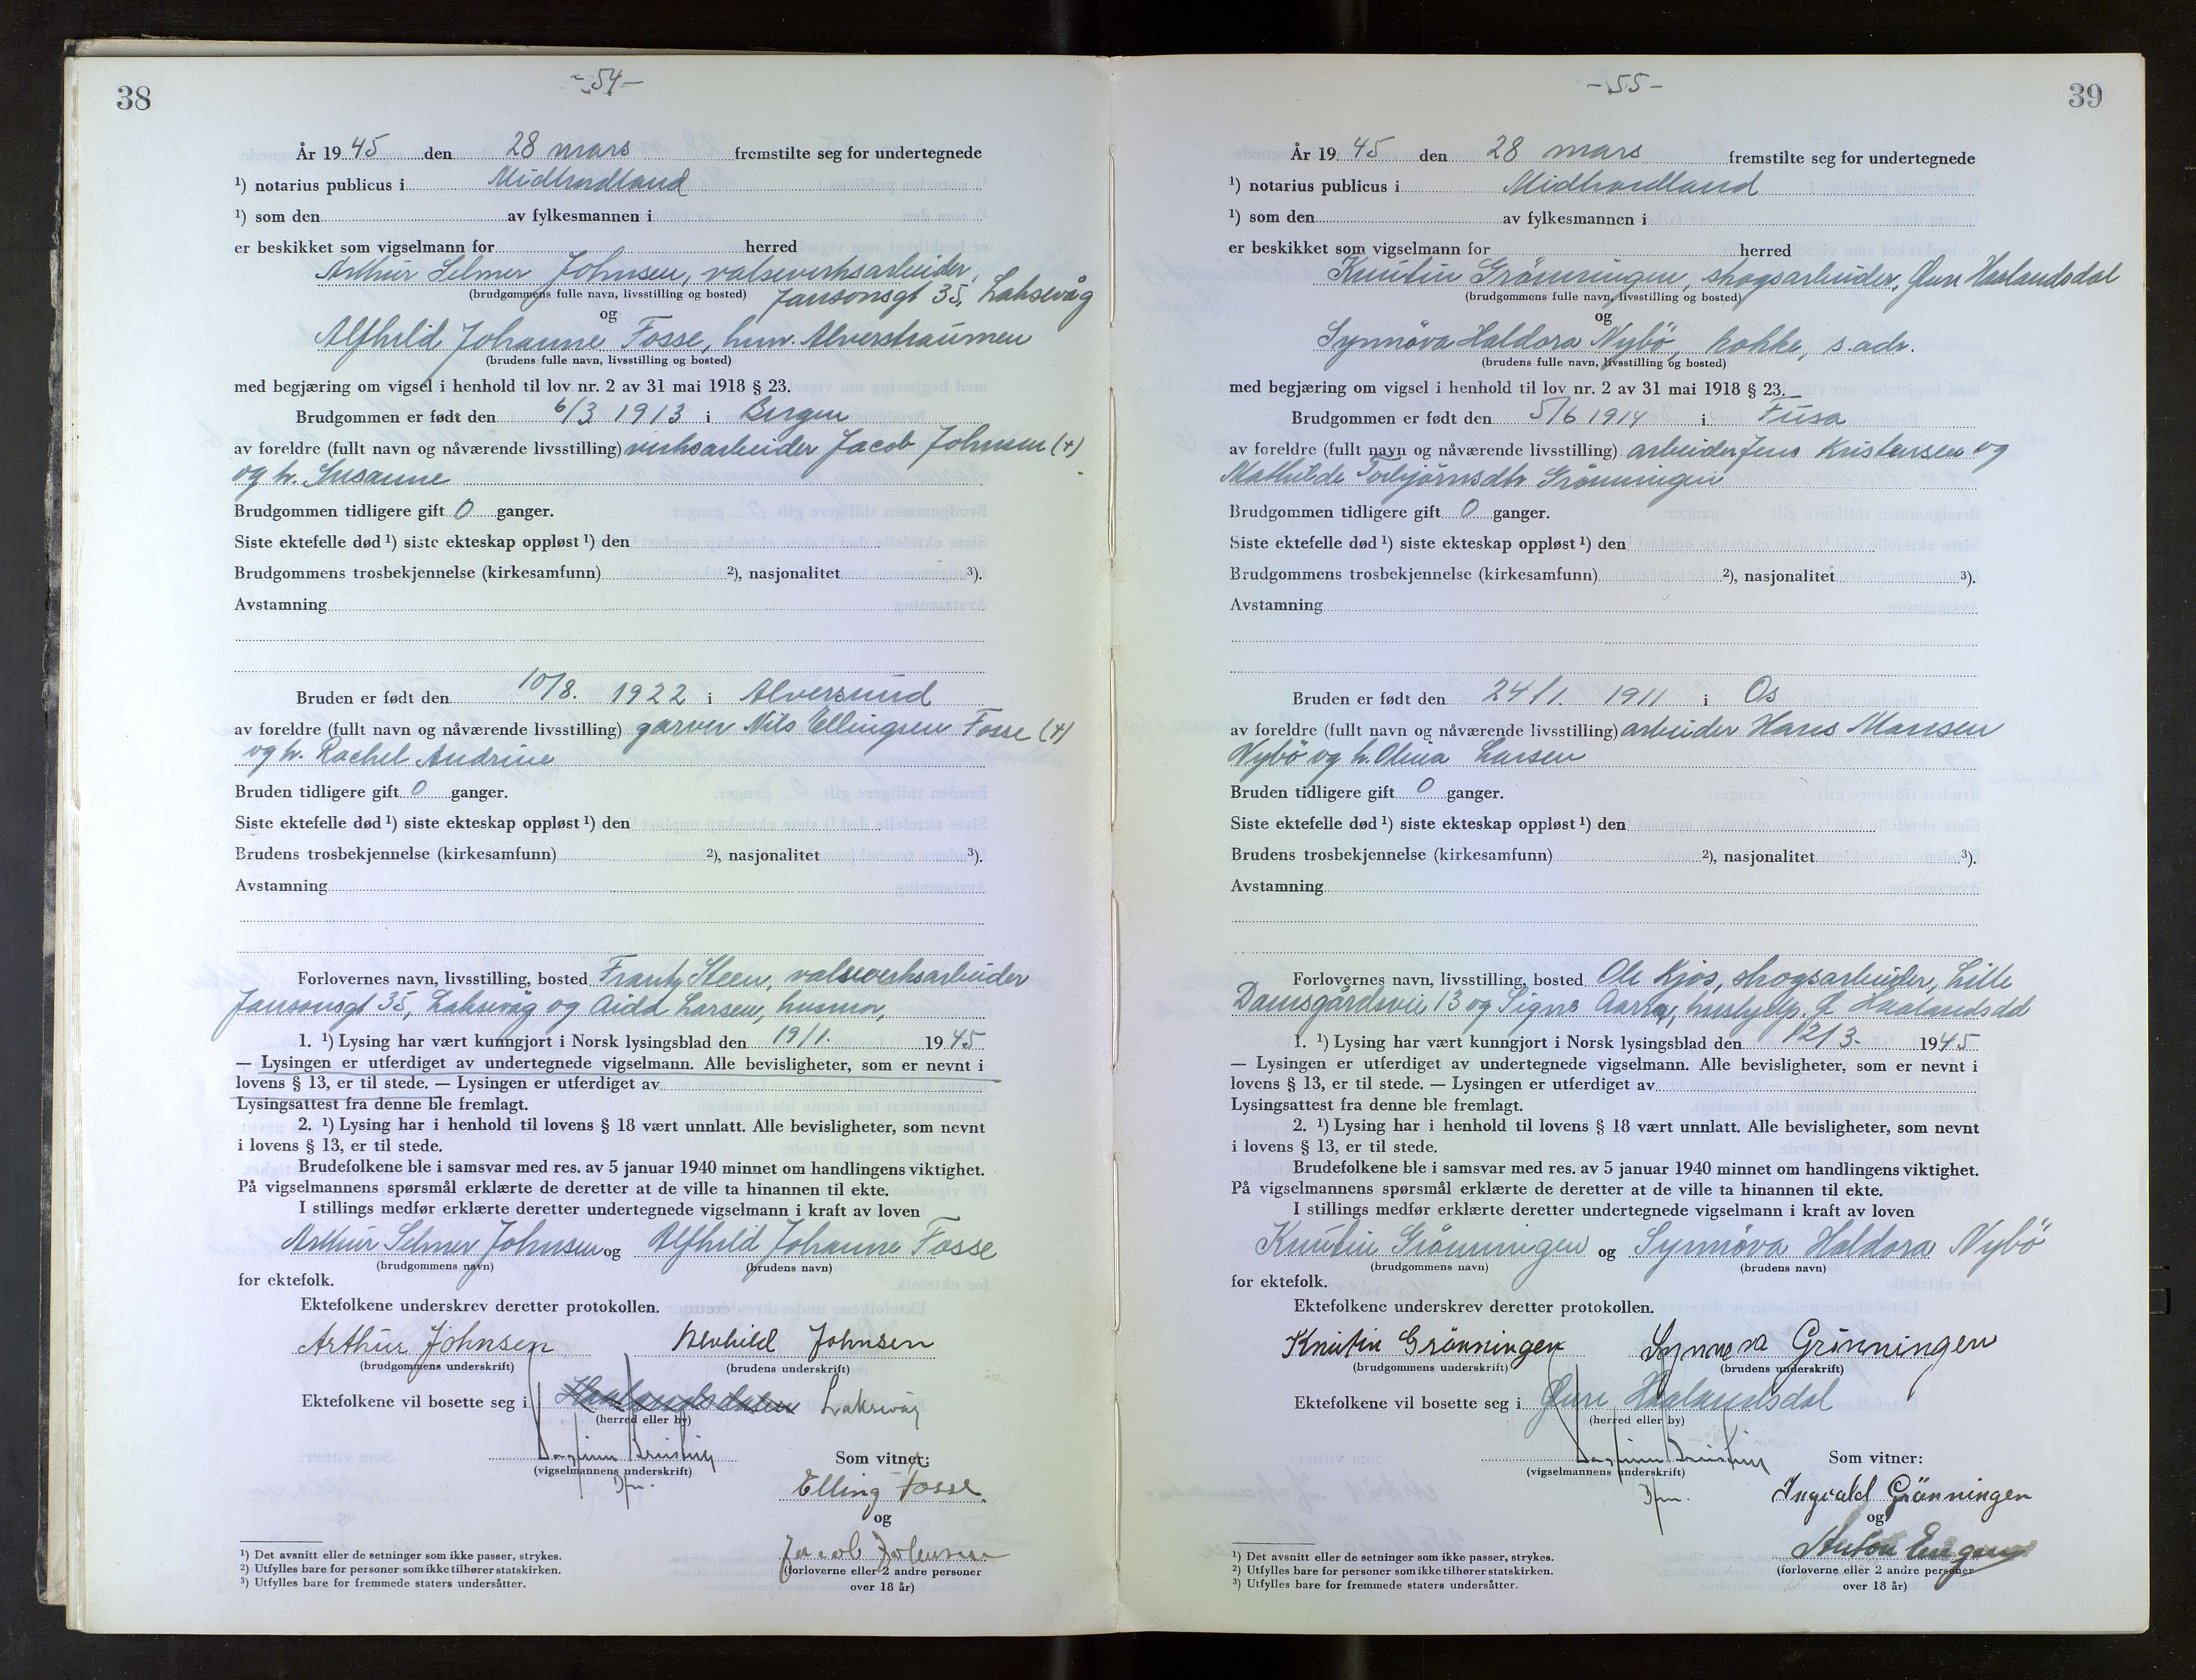 38
- 54 -
År 19 45 den 28 mars fremstilte seg for undertegnede
¹) notarius publicus i Midhordland
¹) som den av fylkesmannen i
er beskikket som vigselmann for herred
Arthur Selmer Johnsen, valseverksarbeider,
(brudgommens fulle navn, livsstilling og bosted) Jansonsgt 35, Laksevåg
og
Alfhild Johanne Fosse, husm. Alverstraumen
(brudens fulle navn, livsstilling og bosted)
med begjæring om vigsel i henhold til lov nr. 2 av 31 mai 1918 § 23.
Brudgommen er født den 6/3 1913 i Bergen
av foreldre (fullt navn og nåværende livsstilling) verksarbeider Jacob Johnsen (+)
og h. Susanne
Brudgommen tidligere gift 0 ganger.
Siste ektefelle død ¹) siste ekteskap oppløst ¹) den
Brudgommens trosbekjennelse (kirkesamfunn) ²), nasjonalitet ³).
Avstamning
Bruden er født den 10/8. 1922 i Alversund
av foreldre (fullt navn og nåværende livsstilling) garver Nils Ellingsen Fosse (+)
og h. Rachel Andrine
Bruden tidligere gift 0 ganger.
Siste ektefelle død ¹) siste ekteskap oppløst ¹) den
Brudens trosbekjennelse (kirkesamfunn) ²), nasjonalitet ³).
Avstamning
Forlovernes navn, livsstilling, bosted Frantz Steen, valseverksarbeider
Jansonsgt 35, Laksevåg og Aida Larsen, husmor,
1. ¹) Lysing har vært kunngjort i Norsk lysingsblad den 19/1. 1945
— Lysingen er utferdiget av undertegnede vigselmann. Alle bevisligheter, som er nevnt i
lovens § 13, er til stede. — Lysingen er utferdiget av
Lysingsattest fra denne ble fremlagt.
2. ¹) Lysing har i henhold til lovens § 18 vært unnlatt. Alle bevisligheter, som nevnt
i lovens § 13, er til stede.
Brudefolkene ble i samsvar med res. av 5 januar 1940 minnet om handlingens viktighet.
På vigselmannens spørsmål erklærte de deretter at de ville ta hinannen til ekte.
I stillings medfør erklærte deretter undertegnede vigselmann i kraft av loven
Arthur Selmer Johnsen og Alfhild Johanne Fosse
(brudgommens navn) (brudens navn)
for ektefolk.
Ektefolkene underskrev deretter protokollen.
Arthur Johnsen Alvhild Johnsen
(brudgommens underskrift) (brudens underskrift)
Ektefolkene vil bosette seg i Haalandsdalen Laksevåg
(herred eller by)
Som vitner:
(vigselmannens underskrift)
Elling Fosse.
og
Jacob Johnsen
(forloverne eller 2 andre personer
over 18 år)
¹) Det avsnitt eller de setninger som ikke passer, strykes.
²) Utfylles bare for personer som ikke tilhører statskirken.
³) Utfylles bare for fremmede staters undersåtter.
39
- 55 -
År 19 45 den 28 mars fremstilte seg for undertegnede
¹) notarius publicus i Midhordland
¹) som den av fylkesmannen i
er beskikket som vigselmann for herred
Knutin Grönningen, skogsarbeider, Øvre Haalandsdal
(brudgommens fulle navn, livsstilling og bosted)
og
Synnöva Haldora Nybö, kokke, s. adr.
(brudens fulle navn, livsstilling og bosted)
med begjæring om vigsel i henhold til lov nr. 2 av 31 mai 1918 § 23.
Brudgommen er født den 5/6 1914 i Fusa
av foreldre (fullt navn og nåværende livsstilling) arbeider Jens Kristensen og
Mathilde Torbjørnsdtr Grönningen
Brudgommen tidligere gift 0 ganger.
Siste ektefelle død ¹) siste ekteskap oppløst ¹) den
Brudgommens trosbekjennelse (kirkesamfunn) ²), nasjonalitet ³).
Avstamning
Bruden er født den 24/1. 1911 i Os
av foreldre (fullt navn og nåværende livsstilling) arbeider Hans Mansen
Nybö og h. Olina Larsen
Bruden tidligere gift 0 ganger.
Siste ektefelle død ¹) siste ekteskap oppløst ¹) den
Brudens trosbekjennelse (kirkesamfunn) ²), nasjonalitet ³).
Avstamning
Forlovernes navn, livsstilling, bosted Ole Kjos, skogsarbeider, Lille
Damsgårdsvei 13 og Signe hushjelp. Ø Haalandsdal
1. ¹) Lysing har vært kunngjort i Norsk lysingsblad den 12/3. 1945
— Lysingen er utferdiget av undertegnede vigselmann. Alle bevisligheter, som er nevnt i
lovens § 13, er til stede. — Lysingen er utferdiget av
Lysingsattest fra denne ble fremlagt.
2. ¹) Lysing har i henhold til lovens § 18 vært unnlatt. Alle bevisligheter, som nevnt
i lovens § 13, er til stede.
Brudefolkene ble i samsvar med res. av 5 januar 1940 minnet om handlingens viktighet.
På vigselmannens spørsmål erklærte de deretter at de ville ta hinannen til ekte.
I stillings medfør erklærte deretter undertegnede vigselmann i kraft av loven
Knutin Grönningen og Synnöva Haldora Nybö
(brudgommens navn) (brudens navn)
for ektefolk.
Ektefolkene underskrev deretter protokollen.
Knutin Grönningen Synneva Grönningen
(brudgommens underskrift) (brudens underskrift)
Ektefolkene vil bosette seg i Øvre Haalandsdal
(herred eller by)
Som vitner:
(vigselmannens underskrift)
Ingvald Grönningen
og
Anton
(forloverne eller 2 andre personer
over 18 år)
¹) Det avsnitt eller de setninger som ikke passer, strykes.
²) Utfylles bare for personer som ikke tilhører statskirken.
³) Utfylles bare for fremmede staters undersåtter.